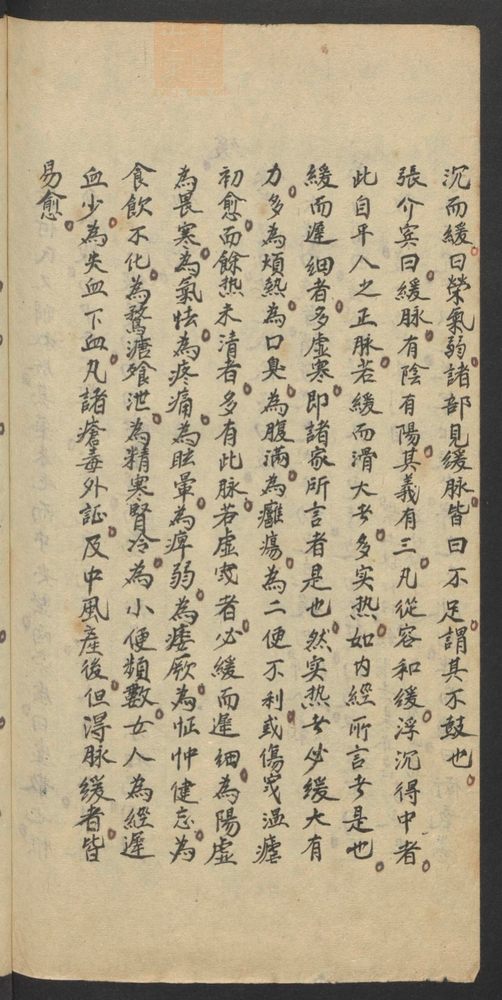 沉而緩曰榮氣弱諸部見緩脉皆曰不足謂其不鼓也
張介宾曰緩脉有陰有陽其義有三凡從容和緩浮沉得中者
此自平人之正脉若緩而滑大者多实热如内經所言者是也
緩而遲细者多虚寒即諸家所言者是也然实热者必緩大有
力多為煩熱為口臭為腹滿為癰瘍為二便不利或傷寒温瘧
初愈而餘热未清者多有此脉若虚寒者必緩而遲细為陽虚
為畏寒為氣怯為疼痛為眩暈為痺弱為痿厥為怔忡健忘為
食飲不化為鶩溏飱泄為精寒腎冷為小便頻數女人為經遲
血少為失血下血凡諸瘡毒外証及中風產後但得脉緩者皆
易愈